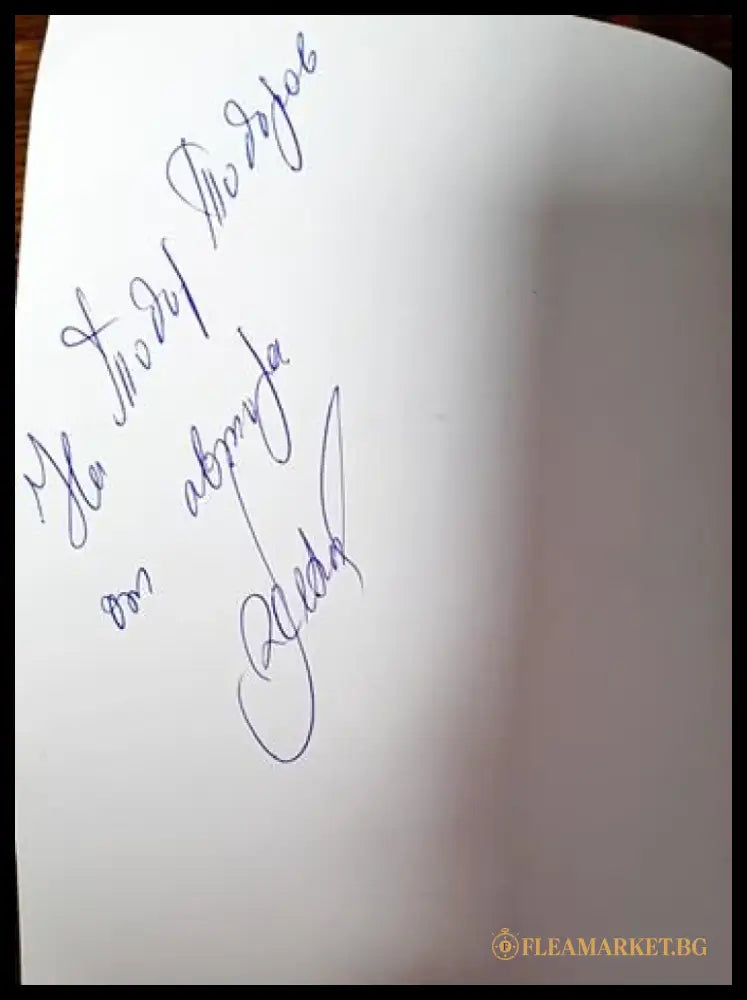 На Тодор Тодоров
от автора
FLEAMARKET.BG